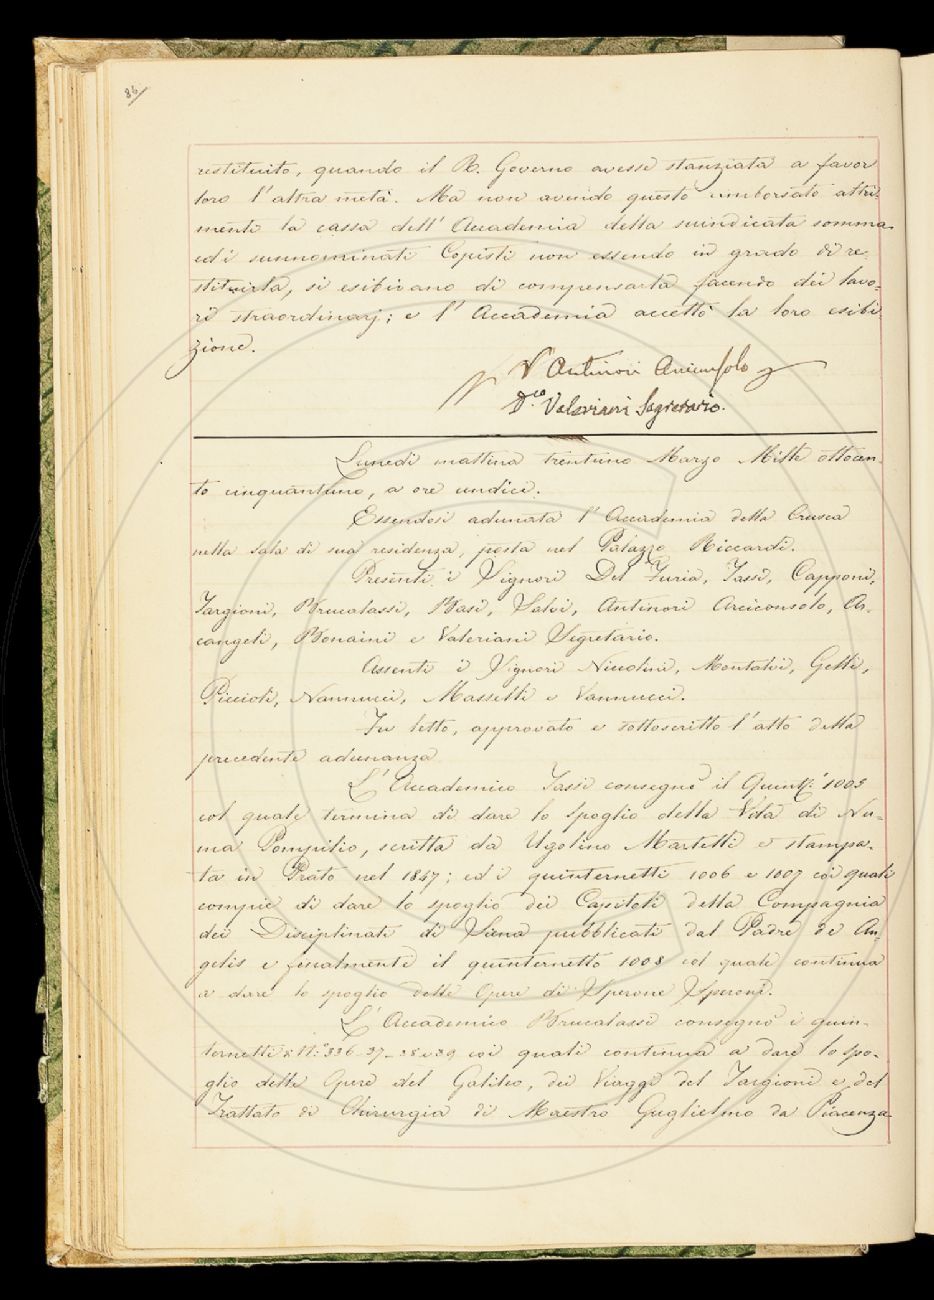 86
restituito, quando il R. Governo avesse stanziata a favor
loro l'altra metà. Ma non avendo questo imborsato altri-
menti la cassa dell'Accademia della suindicata somma
ed i sunnominati Copisti non essendo in grado di re-
stituirla, si esibivano di compensarla facendo dei lavo-
ri straordinarj; e l'Accademia accettò la loro esibi
zione.
V Antinori Arciconsolo
D.co Valeriani Segretario.
Lunedì mattina trentuno Marzo Mille ottocen-
to cinquantuno, a ore undici.
Essendosi adunata l'Accademia della Crusca
nella sala di sua residenza, posta nel Palazzo Riccardi.
Presenti i Signori Del Furia, Tassi, Capponi,
Targioni, Brucalassi, Basi, Salvi, Antinori Arciconsolo, Ar-
cangeli, Bonaini e Valeriani Segretario.
Assenti i Signori Niccolini, Montalvi, Gelli,
Piccioli, Nannucci, Masselli e Vannucci.
Fu letto, approvato e sottoscritto l'atto della
precedente adunanza
L'Accademico Tassi consegnò il Quint.º 1005
col quale termina di dare lo spoglio della Vita di Nu-
ma Pompilio, scritta da Ugolino Martelli e stampa-
ta in Prato nel 1847; ed i quinternetti 1006 e 1007 coi quali
compie di dare lo spoglio dei Capitoli della Compagnia
dei Disciplinati di Siena pubblicati dal Padre de An-
gelis e finalmente il quinternetto 1008 col quale continua
a dare lo spoglio delle Opere di Sperone Speroni.
L'Accademico Brucalassi consegnò i quin-
ternetti di N.º 336-37-38 e 39 coi quali continua a dare lo spo-
glio delle Opere del Galileo, dei Viaggi del Targioni e del
Trattato di Chirurgia di Maestro Guglielmo da Piacenza